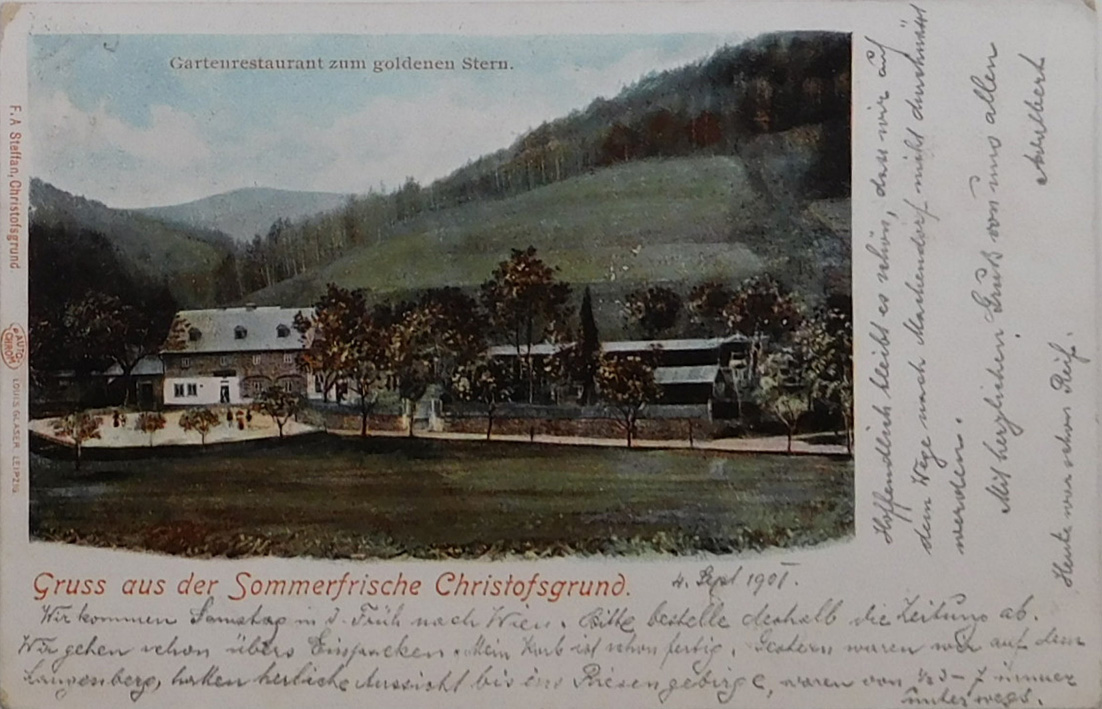 Gartenrestaurant zum goldenen Stern.
F. A. Steffan, Christofsgrund
AUTO-CHROM
LOUIS GLASER LEIPZIG
Gruss aus der Sommerfrische Christofsgrund.
4. Sept 1901.
Wir kommen Samstag in d. Früh nach Wien. Bitte bestelle deshalb die Zeitung ab.
Wir gehen schon übers Einpacken. Mein Korb ist schon fertig. Gestern waren wir auf dem
Langenberg, hatten herliche Aussicht bis ins Riesengebirge, waren von ½3-7 immer
unterwegs.
Hoffendlich bleibt es schön, dass wir auf
dem Wege nach Machendorf nicht durchnässt
werden.
Mit herzlichen Gruß von uns allen
Adalbert
Heute war schon Reif.